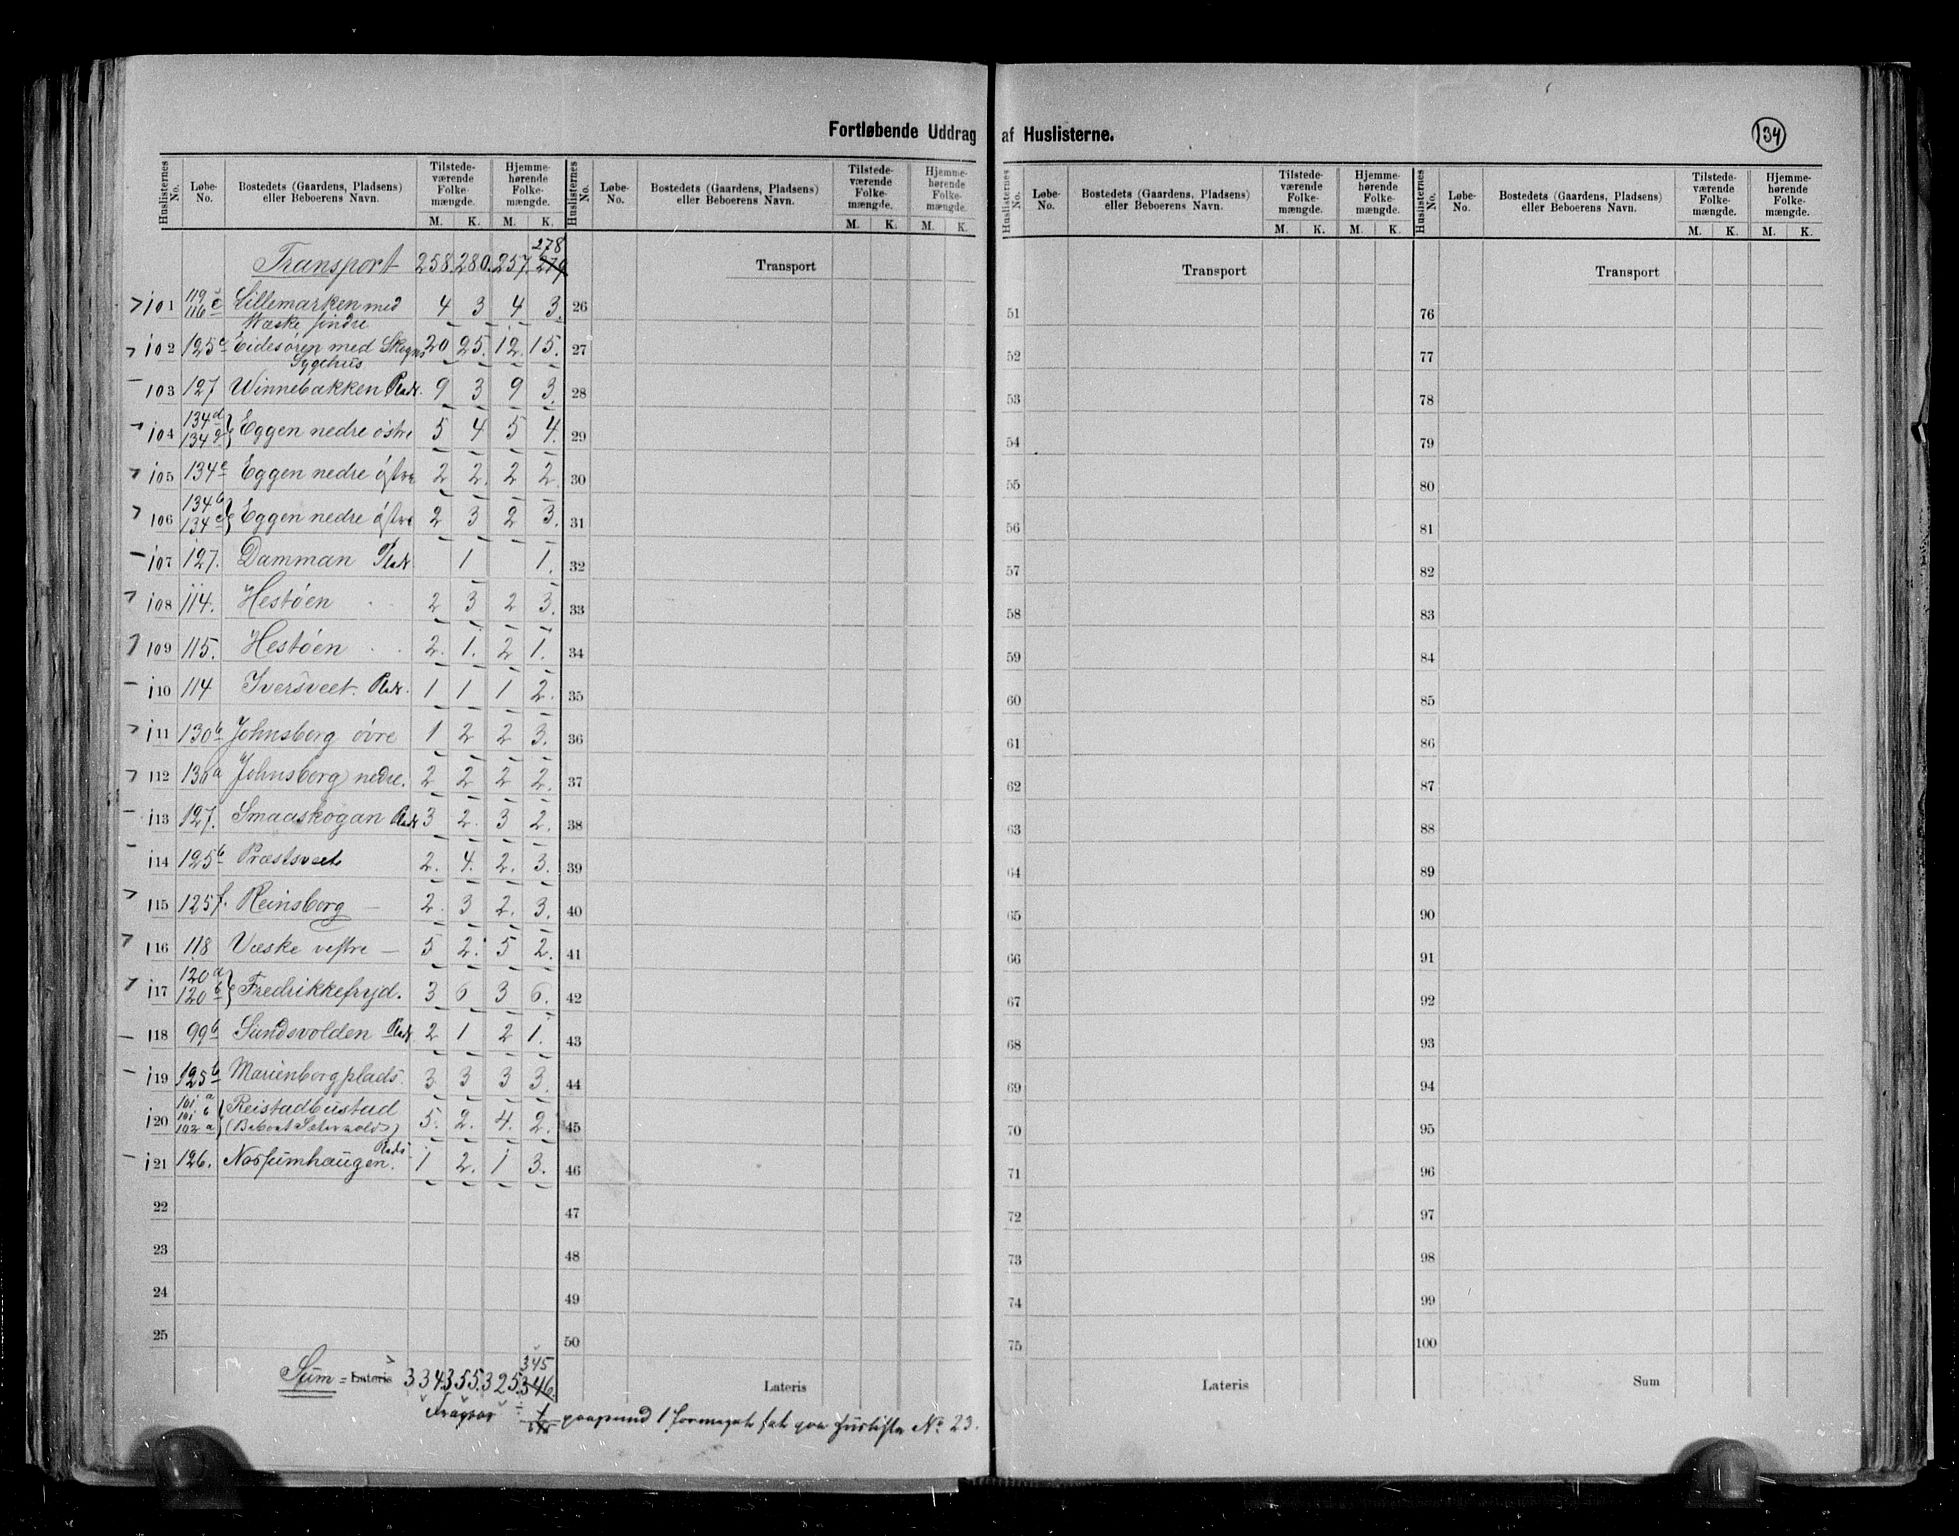 Fortløbende Uddrag af Huslisterne.
134
Huslisternes No. Løbe-No. Bostedets (Gaardens, Pladsens) eller Beboerens Navn. Tilstedeværende Folkemængde. M. K. Hjemmehørende Folkemængde. M. K.
278
Transport 258. 280. 257. 279
101 119 c 116 c Lillemarken med 4 3 4 3.
Væske søndre
102 125 e Eidesøren med Skogns 20 25. 12. 15.
Sygehus
103 127 Winnebakken Plads. 9 3 9 3.
104 134 d 134 g Eggen nedre østre 5 4 5 4.
105 134 e Eggen nedre østre 2 2. 2 2.
106 134 b 134 c Eggen nedre østre 2 3 2 3.
107 127. Damman Plads 1 1.
108 114. Hestøen 2 3 2 3.
109 115. Hestøen 2. 1. 2 1.
110 114 Iversveet. Plads. 1 1 1 2.
111 130 b Johnsborg øvre 1 2 2 3.
112 130 a Johnsborg nedre. 2 2 2 2.
113 127. Smaaskogan Plads 3 2. 3 2.
114 125 b Præstsveet 2. 4. 2. 3.
115 125 f. Reinsborg 2. 3 2. 3.
116 118 Væske vestre 5 2. 5 2.
117 120 a 120 b Fredrikkefryd. 3 6 3 6.
118 99 b Sundsvolden Plads 2 1 2 1.
119 125 b Marienborg plads. 3 3 3 3.
120 101 a 101 c 102 a Reistadbustad 5. 2. 4. 2.
Plads
121 126. Nossumhaugen. 1 2. 1 3.
22
23
24
25
345
Sum = Lateris 334. 355. 325. 346.
1 paagrund 1 formeget sat paa Husliste No 23.
Huslisternes No. Løbe-No. Bostedets (Gaardens, Pladsens) eller Beboerens Navn. Tilstedeværende Folkemængde. M. K. Hjemmehørende Folkemængde. M. K.
Transport
26
27
28
29
30
31
32
33
34
35
36
37
38
39
40
41
42
43
44
45
46
47
48
49
50
Lateris
Huslisternes No. Løbe-No. Bostedets (Gaardens, Pladsens) eller Beboerens Navn. Tilstedeværende Folkemængde. M. K. Hjemmehørende Folkemængde. M. K.
Transport
51
52
53
54
55
56
57
58
59
60
61
62
63
64
65
66
67
68
69
70
71
72
73
74
75
Lateris
Huslisternes No. Løbe-No. Bostedets (Gaardens, Pladsens) eller Beboerens Navn. Tilstedeværende Folkemængde. M. K. Hjemmehørende Folkemængde. M. K.
Transport
76
77
78
79
80
81
82
83
84
85
86
87
88
89
90
91
92
93
94
95
96
97
98
99
100
Sum